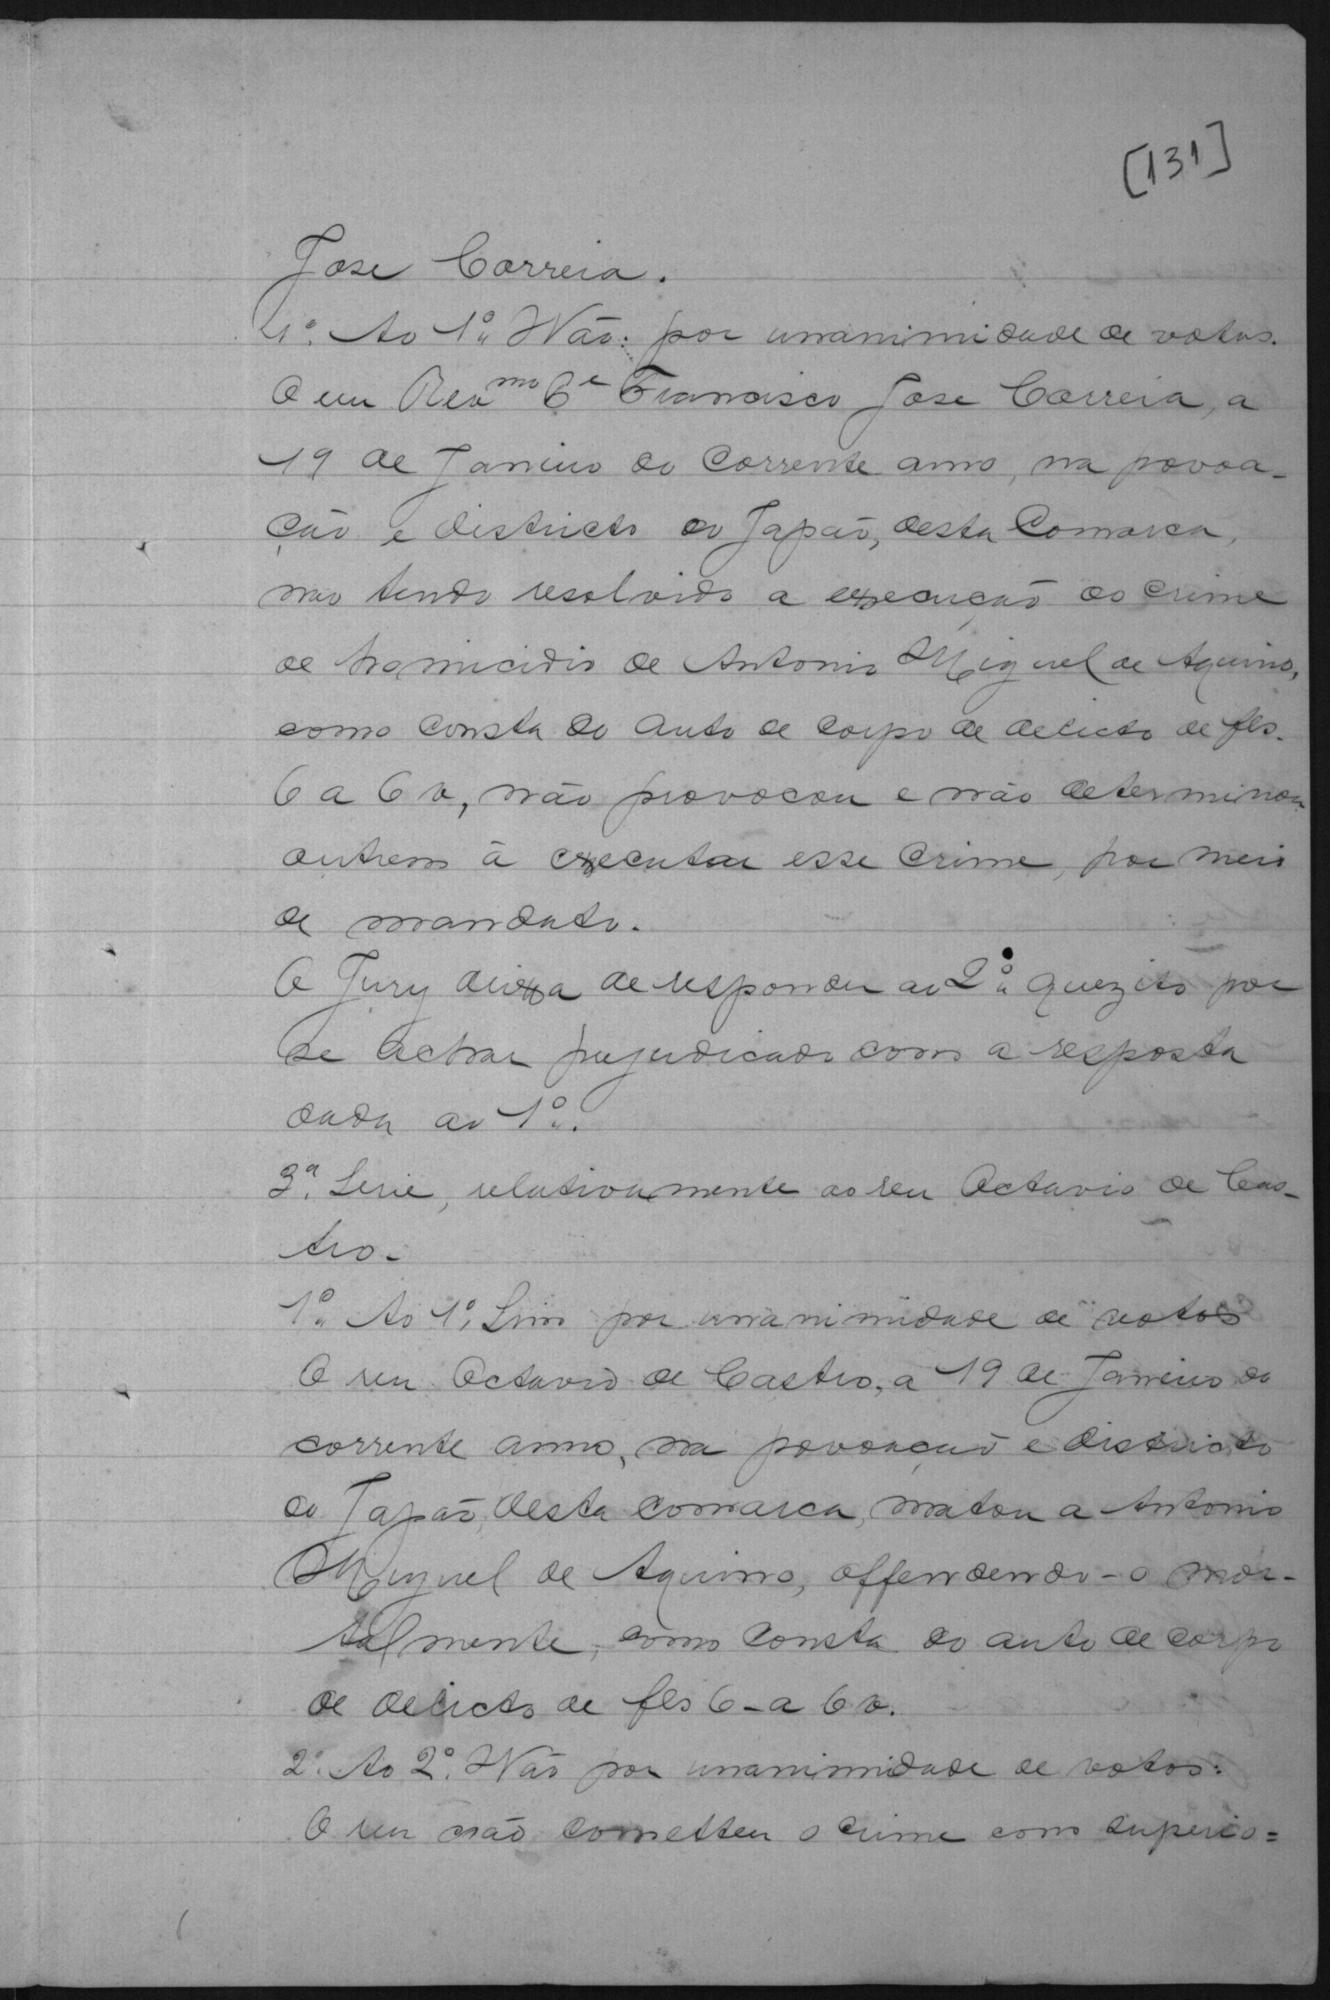 [131]
Jose Correia.
1º. Ao 1º. Não: por unanimidade de votos.
O reu Revmo Pe Francisco Jose Correia, a
19 de Janeiro do corrente anno, na povoa-
ção e districto do Japão, desta Comarca,
não tendo resolvido a execução do crime
de homicidio de Antonio Miguel de Aquino,
como consta do auto de corpo de delicto de fls.
6 a 6 v, não provocou e não determinou
outrem à executar esse crime, por meio
de mandato.
O Jury deixa de responder ao 2º. quezito por
se achar prejudicado com a resposta
dada ao 1º.
3ª. Serie, relativamente ao reu Octavio de Cas-
tro-
1º. Ao 1º, Sim por unanimidade de votos
O reu Octavio de Castro, a 19 de Janeiro do
corrente anno, na povoação e districto
do Japão, desta comarca, matou a Antonio
Miguel de Aquino, offendendo-o mor-
talmente, como consta do auto de corpo
de delicto de fls 6-a 6 v.
2º. Ao 2º. Não por unanimidade de votos:
O reu não cometteu o crime com superio=